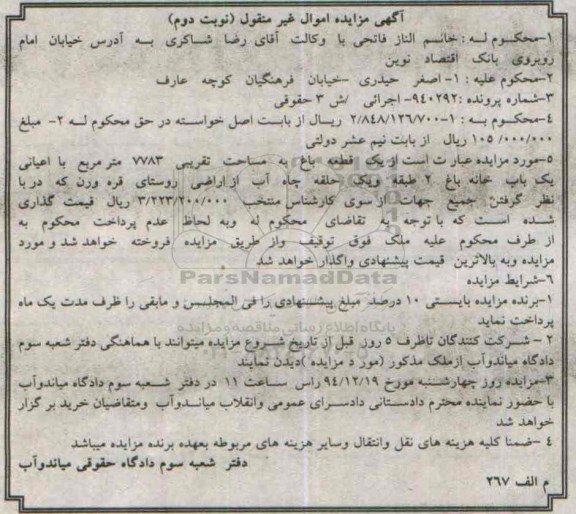 آگهی مزایده اموال غیر منقول (نوبت دوم)
۱-محکوم له : خانم الناز فاتحی با وکالت آقای رضا شاکری به آدرس خیابان امام
روبروی بانک اقتصاد نوین
۲-محکوم علیه : ۱- اصغر حیدری -خیابان فرهنگیان کوچه عارف
۳-شماره پرونده :۹۴۰۲۹۲- اجرائی /ش ۳ حقوقی
۴-محکوم به : ۱-۲/۸۴۸/۱۲۶/۷۰۰ ریال از بابت اصل خواسته در حق محکوم له ۲- مبلغ
۱۰۵/۰۰۰/۰۰۰ ریال از بابت نیم عشر دولتی
۵-مورد مزایده عبارت است از یک قطعه باغ به مساحت تقریبی ۷۷۸۳ متر مربع با اعیانی
یک باب خانه باغ ۲ طبقه ویک حلقه چاه آب از اراضی روستای قره ورن که در با
نظر گرفتن جمیع جهات از سوی کارشناس منتخب ۳/۲۲۳/۲۰۰/۰۰۰ ریال قیمت گذاری
شده است که با توجه به تقاضای محکوم له وبه لحاظ عدم پرداخت محکوم به
از طرف محکوم علیه ملک فوق توقیف واز طریق مزایده فروخته خواهد شد و مورد
مزایده وبه بالاترین قیمت پیشنهادی واگذار خواهد شد
ParsNamadData
۶-شرایط مزایده
۱-برنده مزایده بایستی ۱۰ درصد مبلغ پیشنهادی را فی المجلس و مابقی را ظرف مدت یک ماه
پرداخت نماید
پایگاه اطلاع رسانی مناقصه و مزایده
۲ - شرکت کنندگان تاظرف ۵ روز قبل از تاریخ شروع مزایده میتوانند با هماهنگی دفتر شعبه سوم
دادگاه میاندوآب ازملک مذکور (مور د مزایده )دیدن نمایند
۳-مزایده روز چهارشنبه مورخ ۹۴/۱۲/۱۹ راس ساعت ۱۱ در دفتر شعبه سوم دادگاه میاندوآب
با حضور نماینده محترم دادستانی دادسرای عمومی وانقلاب میاندوآب ومتقاضیان خرید بر گزار
خواهد شد
۴ -ضمنا کلیه هزینه های نقل وانتقال وسایر هزینه های مربوطه بعهده برنده مزایده میباشد
دفتر شعبه سوم دادگاه حقوقی میاندوآب
م الف ۲۶۷